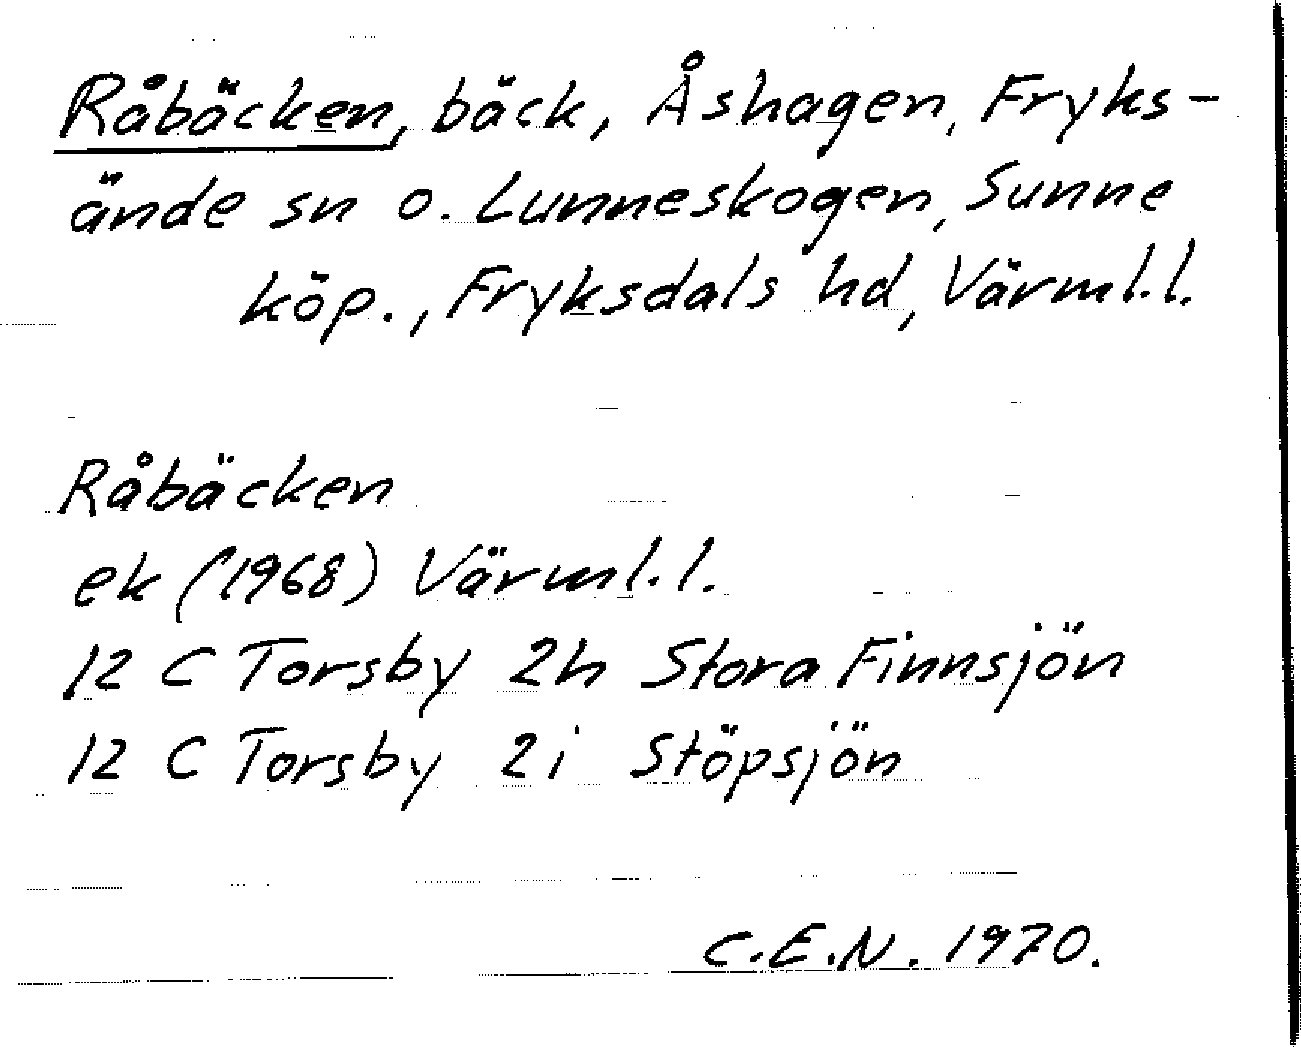 Råbäcken, bäck, Åshagen, Fryks-
ände sn o. Lunneskogen, Sunne
köp., Fryksdals hd, Värml.l.
Råbäcken
ek (1968) Värml.l.
12 C Torsby 2h Stora Finnsjön
12 C Torsby 2i Stöpsjön
C.E.N. 1970.